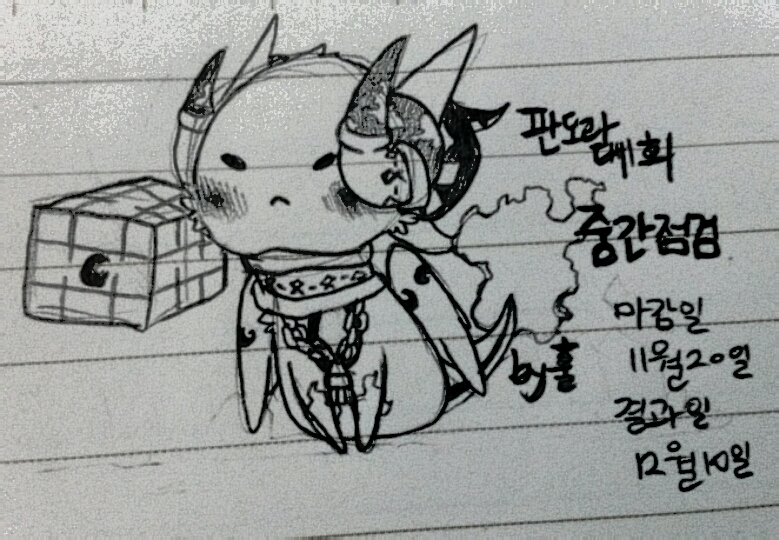 판도라
대회
중간점검
마감일
11월20일
by홀
결과일
12월10일